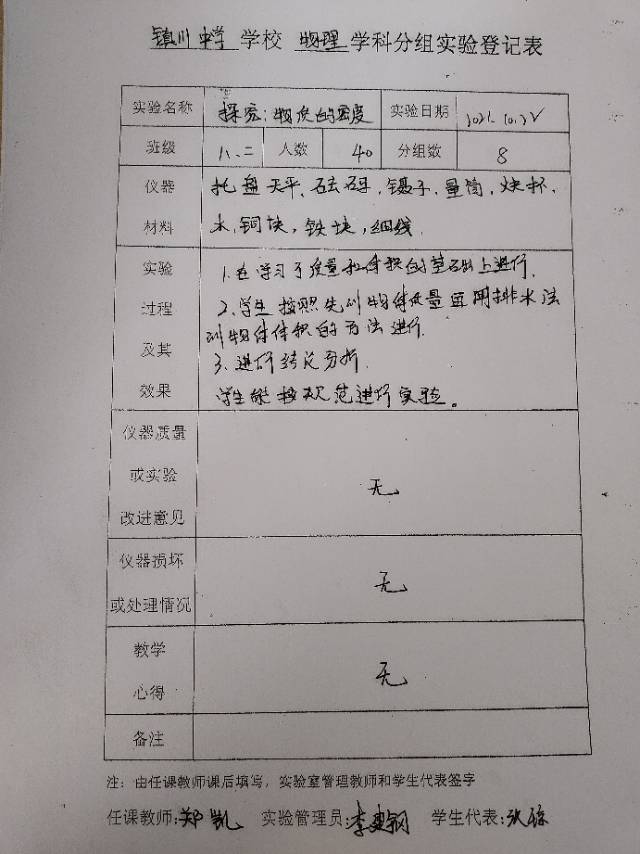 镇川中学 学校 物理 学科分组实验登记表
实验名称 探究:物质的密度 实验日期 2021.10.22
班级 八.二 人数 40 分组数 8
仪器材料 托盘天平、砝码、镊子、量筒、烧杯、
水、铜块,铁块,细线.
实验过程及其效果 1.在学习了质量和体积的基础上进行.
2.学生按照先测物体质量再用排水法
测物体体积的方法进行.
3.进行结论分析.
学生能按规范进行实验。
仪器质量或实验改进意见 无
仪器损坏或处理情况 无
教学心得 无
备注
注:由任课教师课后填写,实验室管理教师和学生代表签字
任课教师:郑凯 实验管理员:李 学生代表:张